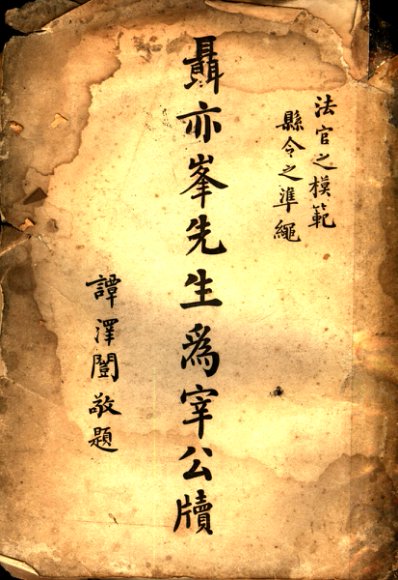 法官之模範
縣令之準繩
聶亦峯先生為宰公牘
譚澤闓敬題